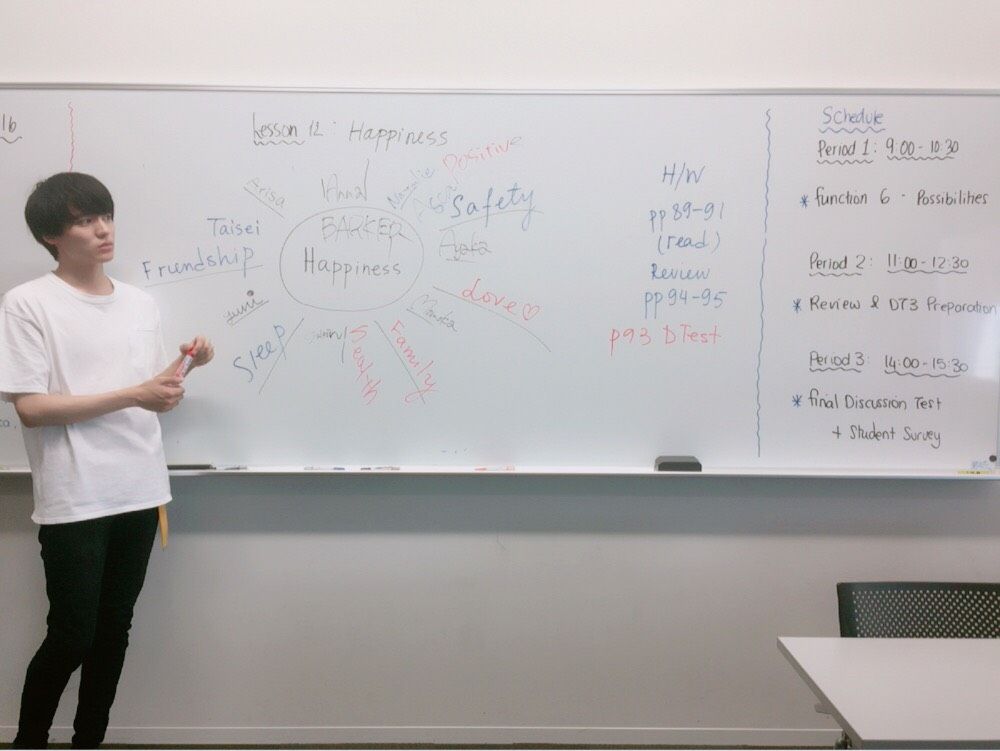 1b
Lesson 12 : Happiness
Positive
Arisa
Anna
Natalie
Safety
Taisei
BARKER
Friendship
Happiness
Ayaka
yumi
Love♡
Sleep
Sealth
Family
H/W
pp 89-91
(read)
Review
pp 94-95
p93 DTest
Schedule
Period 1 : 9:00 - 10:30
* function 6 - Possibilities
Period 2 : 11:00 - 12:30
* Review & DT3 Preparation
Period 3 : 14:00 - 15:30
* final Discussion Test
+ Student Survey